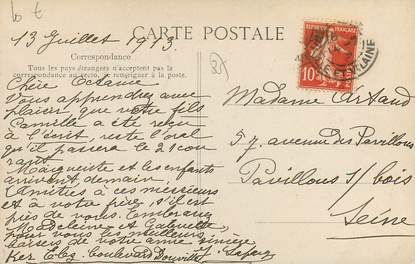 13 Juillet 1913.
CARTE POSTALE
Correspondance
Tous les pays étrangers n'acceptent pas la
correspondance au recto, se renseigner à la poste.
Chère Octavie
Vous apprendrez avec
plaisir que votre fils
Camille a été reçu
à l'écrit, reste l'oral
qu'il passera le 21 cou
rant
Marguerite et les enfants
arrivent demain,
Amitiés à ces messieurs
et à votre frère, s'il est
près de vous. Embrassez
Madeleine et Gabrielle,
pour vous les meilleurs
baisers de votre amie sincère
Ker boulevard
Madame Artaud
57, avenue des Pavillons
Pavillons s/ bois
Seine
10